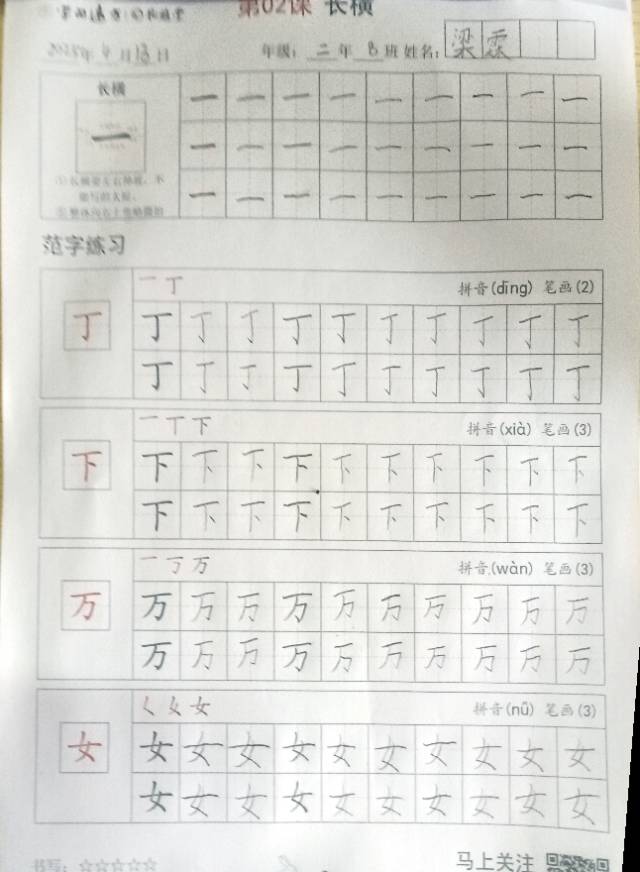 第02课 长横
年 4 月 13 日 年级：二年 8 班 姓名：梁霖
长横
一 一 一 一 一 一 一 一 一
一 一 一 一 一 一 一 一 一 一
一 一 一 一 一 一 一 一 一
范字练习
一 丁 拼音(dīng) 笔画(2)
丁 丁 丁 丁 丁 丁 丁 丁 丁 丁 丁
丁 丁 丁 丁 丁 丁 丁 丁 丁 丁
一 丅 下 拼音(xià) 笔画(3)
下 下 下 下 下 下 下 下 下 下 下
下 下 下 下 下 下 下 下 下 下
一 丁 万 拼音(wàn) 笔画(3)
万 万 万 万 万 万 万 万 万 万 万
万 万 万 万 万 万 万 万 万 万
ㄑ 女 女 拼音(nǚ) 笔画(3)
女 女 女 女 女 女 女 女 女 女 女
女 女 女 女 女 女 女 女 女 女
书写：☆☆☆☆☆ 马上关注